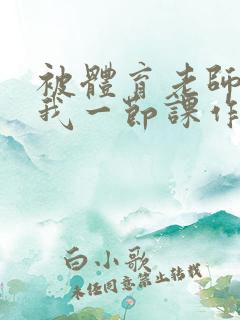 被體育老師
我一節課作
白小歌
未經同意禁止轉載